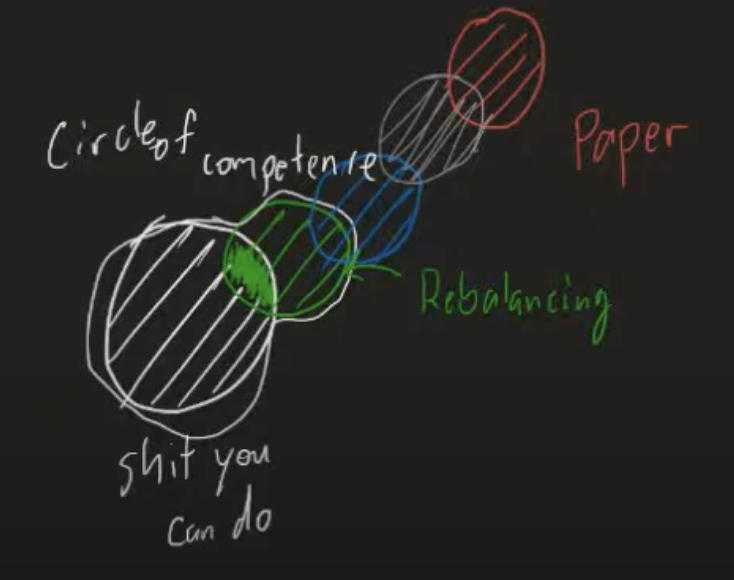 Circle of
competence
Paper
Rebalancing
shit you
can do